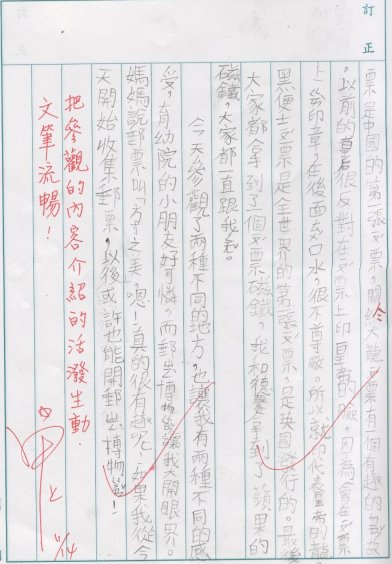 訂正
票是中國的第一張郵票。關於大龍郵票有一個有趣的故
。以前的皇后很反對在郵票上印皇帝的臉,因為會在郵票
上蓋印章,在後面塗口水,很不尊敬。所以就印代表皇帝的龍。
黑便士郵票是全世界的第一張郵票,是英國發行的。最後
大家都拿到了一個郵票磁鐵,我和德賢拿到了蘋果的
磁鐵,大家都一直跟我
今天參觀了兩種不同的地方,也讓我有兩種不同的感
受,育幼院的小朋友好可憐,而郵局博物館讓我大開眼界。
媽媽說郵票叫「方寸之美」,嗯!真的很有趣呢!如果我從今
天開始收集郵票,以後或許也能開郵局博物館!
把參觀的內容介紹的活潑生動.
文筆流暢!
甲上
11/14